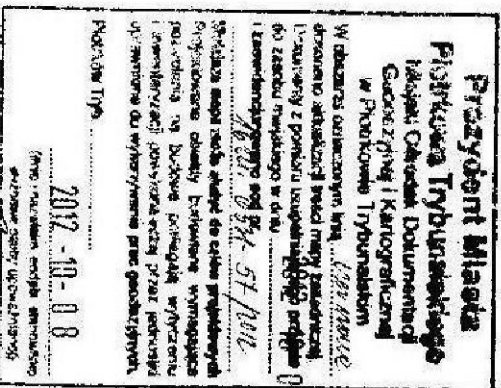 Prezydent Miasta
Piotrkowa Trybunalskiego
Miejski Ośrodek Dokumentacji
Geodezyjnej i Kartograficznej
w Piotrkowie Trybunalskim
W obszarze oznaczonym linią
dokonano aktualizacji treści mapy zasadniczej
Dokumenty z pomiaru uzupełniającego przyjęto
do zasobu miejskiego w dniu
i zaewidencjonowano pod nr
Niniejsza mapa może służyć do celów projektowych
Projektowane obiekty budowlane wymagające
pozwolenia na budowę podlegają wytyczeniu
i inwentaryzacji powykonawczej przez jednostki
uprawnione do wykonywania prac geodezyjnych.
Piotrków Tryb.
2012 -10- 0 8